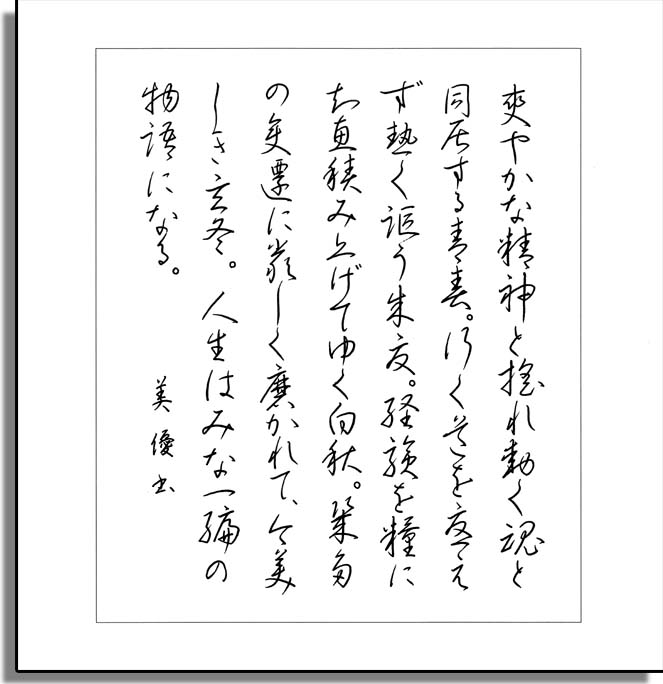 爽やかな精神と揺れ動く魂と
同居する青春。行く道を変え
ず熱く謳う朱夏。経験を糧に
知恵積み上げてゆく白秋。幾多
の変遷に厳しく磨かれて、今美
しき玄冬。人生はみな一編の
物語になる。
美優書